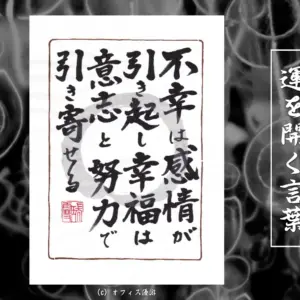 不幸は感情が
引き起し幸福は
意志と努力で
引き寄せる
運を開く言葉